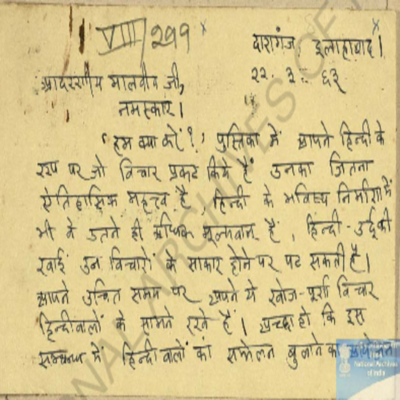 VIII/299
दारागंज, इलाहाबाद।
२२. ३. ६३
आदरणीय मालवीय जी,
नमस्कार।
'हम क्या करें?' पुस्तिका में आपने हिन्दी के
रूप पर जो विचार प्रकट किये हैं उनका जितना
ऐतिहासिक महत्व है, हिन्दी के भविष्य निर्माण में
भी वे उतने ही अधिक मूल्यवान हैं, हिन्दी-उर्दू की
खाई उन विचारों के साकार होने पर पट सकती है।
आपने उचित समय पर अपने ये खोज-पूर्ण विचार
हिन्दीवालों के सामने रखे हैं। अच्छा हो कि इस
सम्बन्ध में हिन्दी वालों का सम्मेलन बुलाने का आयोजन